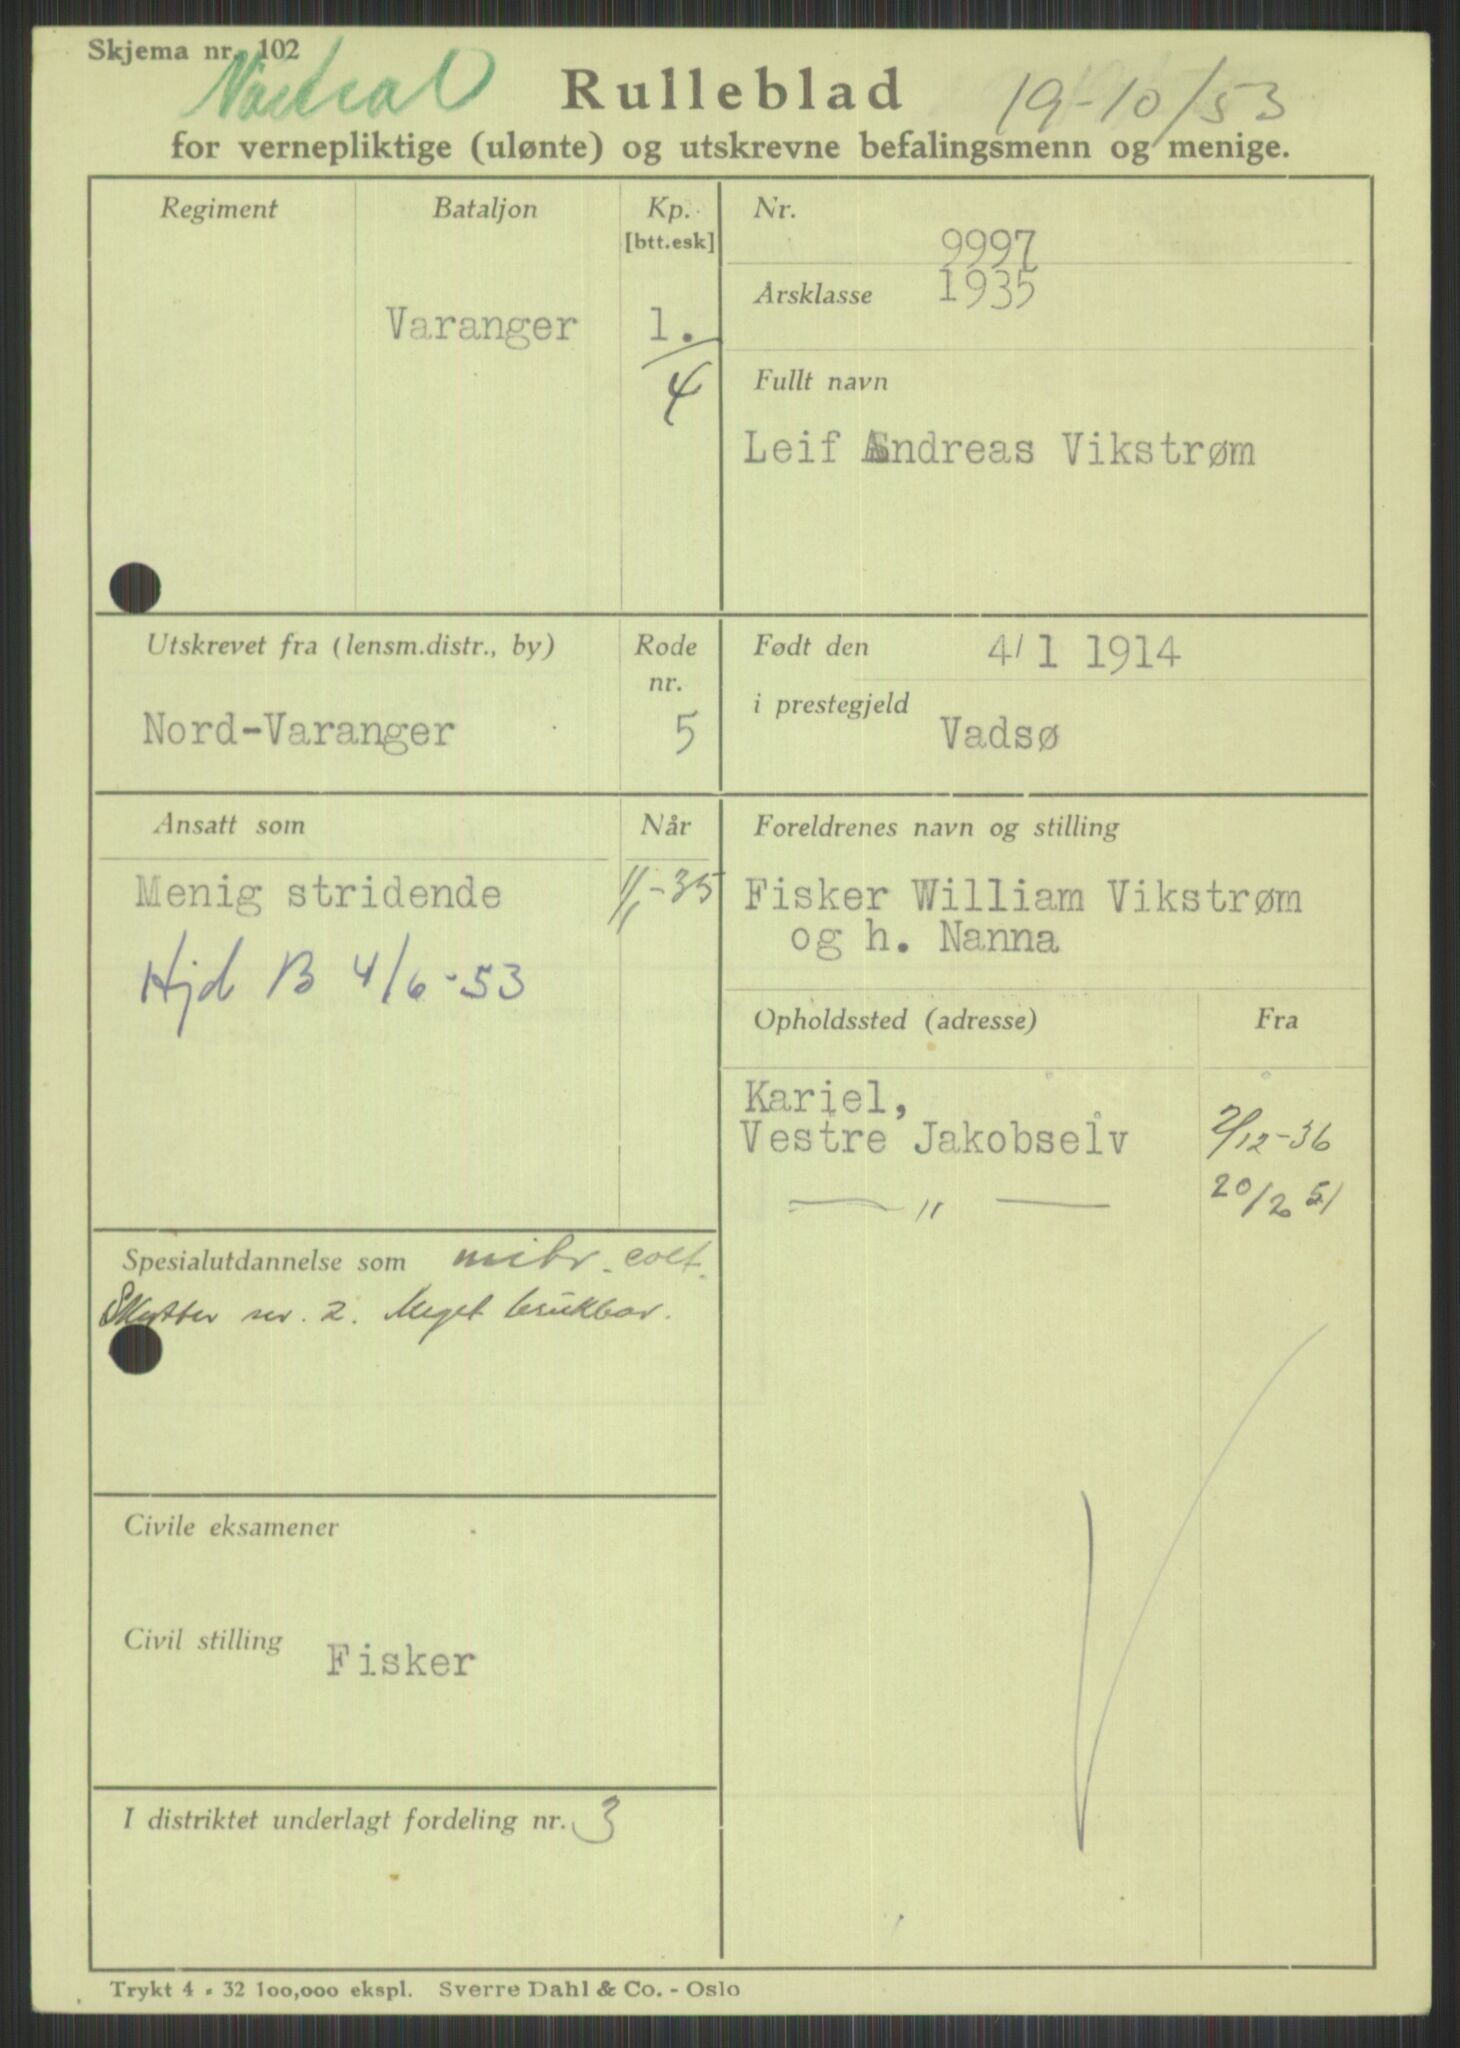 Skjema nr. 102
Rulleblad
19-10/53
for vernepliktige (ulønte) og utskrevne befalingsmenn og menige.
Regiment Bataljon Kp. [btt.esk]
Varanger 1.
4
Nr. 9997
Årsklasse 1935
Fullt navn
Leif Andreas Vikstrøm
Utskrevet fra (lensm.distr., by) Rode nr.
Nord-Varanger 5
Født den 4/1 1914
i prestegjeld Vadsø
Ansatt som Når
Menig stridende 1/1-35
Hjd B 4/6-53
Foreldrenes navn og stilling
Fisker William Vikstrøm
og h. Nanna
Opholdssted (adresse) Fra
Kariel,
Vestre Jakobselv 2/12-36
— " — 20/2 51
Spesialutdannelse som mitr. colt.
Skytter nr. 2. Meget brukbar.
Civile eksamener
Civil stilling Fisker
I distriktet underlagt fordeling nr. 3
Trykt 4 - 32 100,000 ekspl. Sverre Dahl & Co. - Oslo